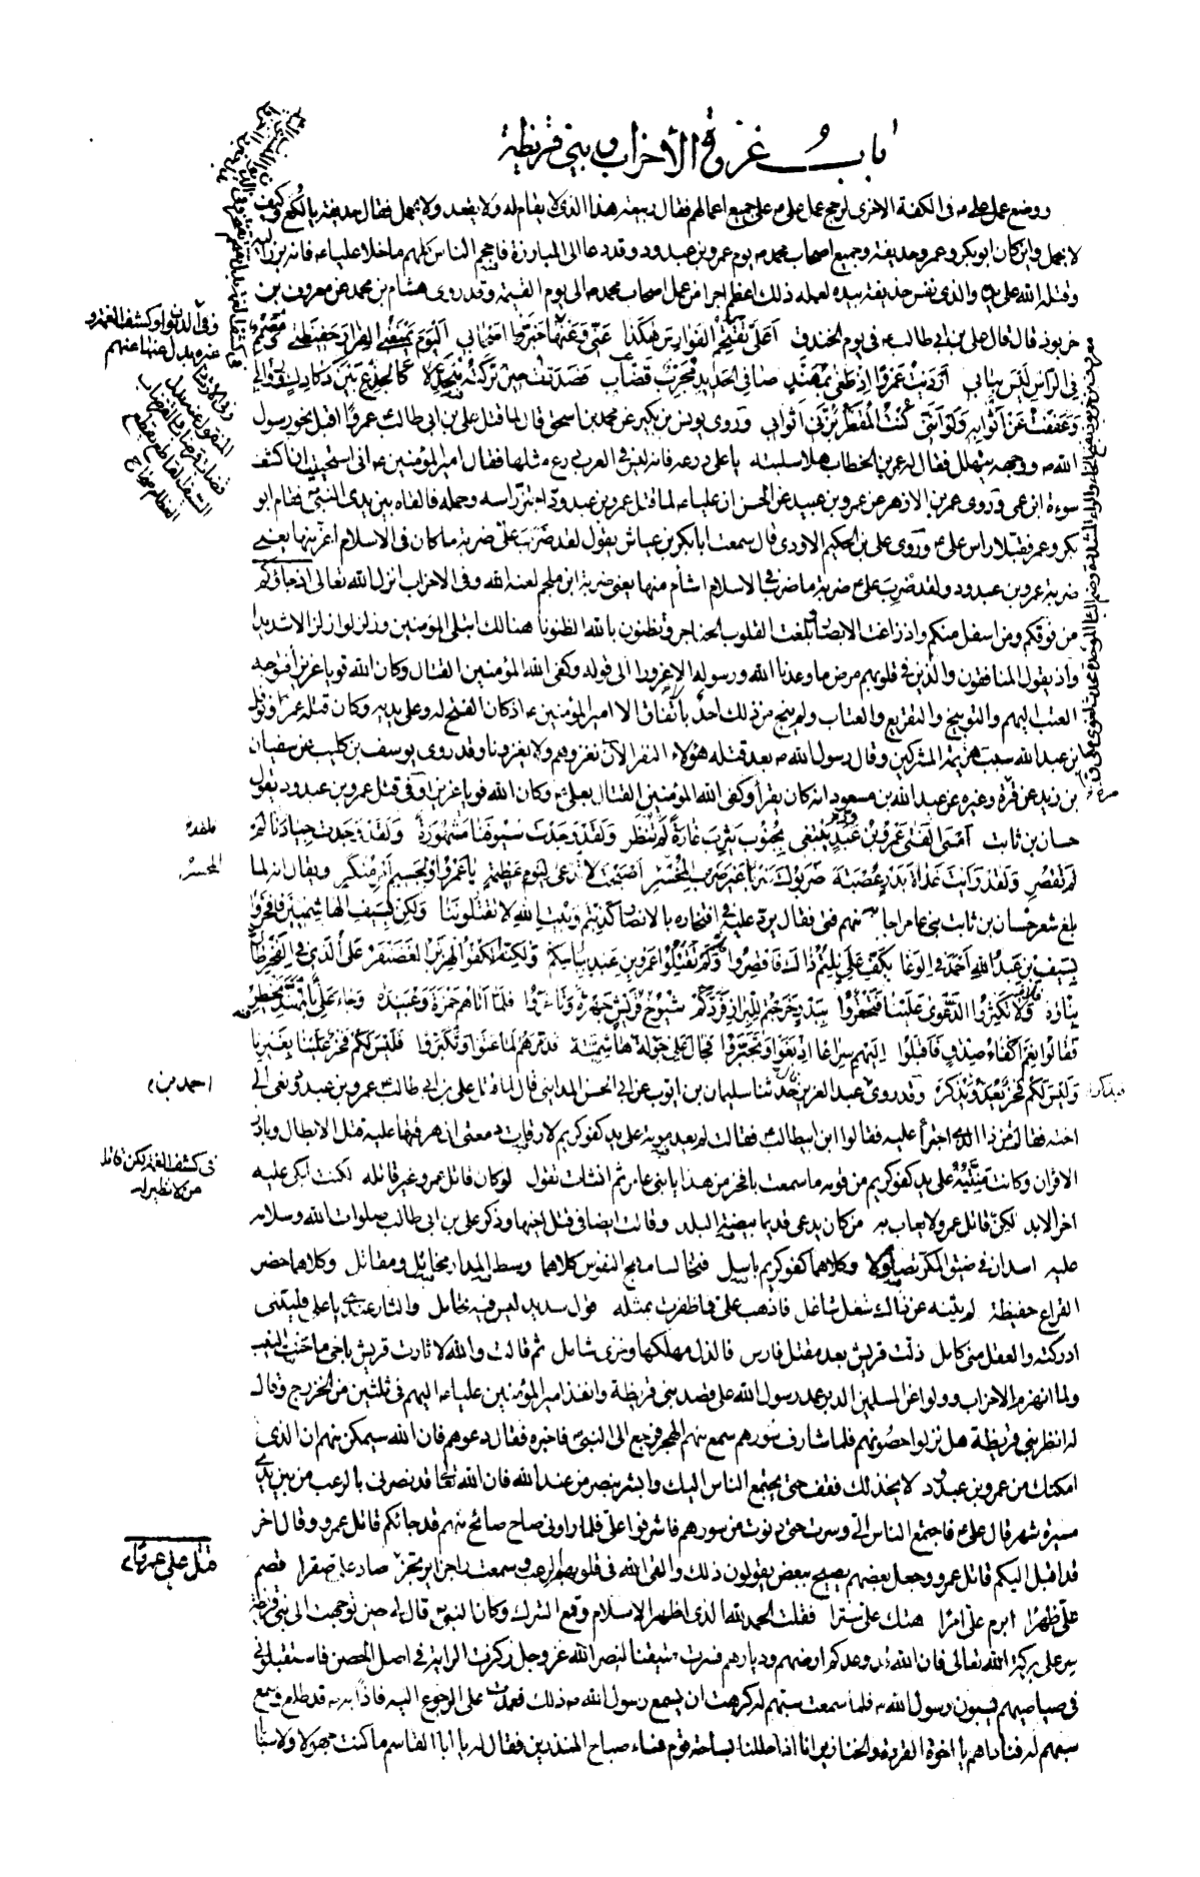 باب غزوة الأحزاب وبني قريظة
ووضع عمل علي ع في الكفة الاخرى لرجح عمل علي ع على جميع اعمالهم فقال ربيعة هذا الذي لا يقام له ولا يقعد ولا يحمل فقال حذيفة يا لكع وكيف
لا يحمل واين كان ابو بكر وعمر وحذيفة وجميع اصحاب محمد ص يوم عمرو بن عبدود وقد دعا الى المبارزة فاحجم الناس كلهم ما خلا عليا ع فانه برز اليه
وقتله الله على يده والذي نفس حذيفة بيده لعمله ذلك اعظم اجرا من عمل اصحاب محمد ص الى يوم القيمة وقد روى هشام بن محمد عن معروف بن
خربوذ قال قال علي بن ابي طالب ع في يوم الخندق أعليّ تقتحم الفوارس هكذا عني وعنها خبروا اصحابي اليوم تمنعني الفرار حفيظتي ومصمم
في الراس ليس بنابي أرديت عمروا اذ طغى بمهند صافي الحديد مجرب قضاب فصددت حين تركته متجدلا كالجذع بين دكادك وروابي
وعففت عن أثوابه ولو أنني كنت المقطر بزني أثوابي وروى يونس بن بكير عن محمد بن اسحق قال لما قتل علي بن ابي طالب عمروا اقبل نحو رسول
الله ص ووجهه يتهلل فقال له عمر بن الخطاب هلا سلبته يا علي درعه فانه ليس في العرب درع مثلها فقال امير المؤمنين ع اني استحييت ان اكشف
سوءة ابن عمي وروى عمر بن الازهر عن عمرو بن عبيد عن الحسن ان عليا ع لما قتل عمرو بن عبدود احتز راسه وحمله فالقاه بين يدي النبي ص فقام ابو
بكر وعمر فقبلا راس علي ع وروى علي بن الحكيم الاودي قال سمعت ابا بكر بن عياش يقول لقد ضرب علي ضربة ما كان في الاسلام اعز منها يعني
ضربة عمرو بن عبدود ولقد ضرب علي ع ضربة ما ضرب في الاسلام اشأم منها يعني ضربة ابن ملجم لعنه الله وفي الاحزاب انزل الله تعالى اذ جاؤكم
من فوقكم ومن اسفل منكم واذ زاغت الابصار وبلغت القلوب الحناجر وتظنون بالله الظنونا هنالك ابتلى المؤمنون وزلزلوا زلزالا شديدا
واذ يقول المنافقون والذين في قلوبهم مرض ما وعدنا الله ورسوله الا غرورا الى قوله وكفى الله المؤمنين القتال وكان الله قويا عزيزا فتوجه
العتب اليهم والتوبيخ والتقريع والعتاب ولم ينج من ذلك احد باتفاق الا امير المؤمنين ع اذ كان الفتح له وعلى يديه وكان قتله عمرا ونوفل
بن عبد الله سبب هزيمة المشركين وقال رسول الله ص بعد قتله هؤلاء النفر الآن نغزوهم ولا يغزونا وقد روى يوسف بن كليب عن سفيان
بن زيد عن قرة وغيره عن عبد الله بن مسعود انه كان يقرأ وكفى الله المؤمنين القتال بعلي ع وكان الله قويا عزيزا وفي قتل عمرو بن عبدود يقول
حسان بن ثابت أمسى الفتى عمرو بن عبد يبتغي بجنوب يثرب غارة لم تنظر ولقد وجدت سيوفنا مشهورة ولقد وجدت جيادنا لم
تقصر ولقد رايت غداة بدر عصبة ضربوك ضربا غير ضرب المخسر أصبحت لا تدعى ليوم عظيمة يا عمرو أو لجسيم أمر منكر ويقال انه لما
بلغ شعر حسان بن ثابت بني عامر اجابه فتى منهم فقال يرد عليه في افتخاره بالانصار كذبتم وبيت الله لا تقتلوننا ولكن بسيف الهاشميين فافخروا
بسيف بن عبد الله احمد في الوغا بكف علي نلتم ذاك فاقصروا ولم تقتلوا عمرو بن عبد بباسكم ولكنه الكفو الهزبر الغضنفر علي الذي في الفخر طال
بناؤه فلا تكثروا الدعوى علينا فتحقروا ببدر خرجتم للبراز فردكم شيوخ قريش جهرة وتأخروا فلما أتاهم حمزة وعبيدة وجاء علي بالمهند يخطر
فقالوا نعم أكفاء صدق فأقبلوا اليهم سراعا اذ بغوا وتجبروا فجال علي جولة هاشمية فدمرهم لما عتوا وتكبروا فليس لكم فخر علينا بغيرنا
وليس لكم فخر يعد ويذكر وقد روى احمد بن عبد العزيز حدثنا سليمان بن ايوب عن ابي الحسن المدايني قال لما قتل علي بن ابي طالب عمرو بن عبدود نعى الى
اخته فقالت من ذا الذي اجترأ عليه فقالوا ابن ابي طالب فقالت لم يعد موته على يد كفو كريم لا رقات دمعتي ان هرقتها عليه قتل الابطال وبارز
الاقران وكانت منيته على يد كفو كريم من قومه ما سمعت بافخر من هذا يا بني عامر ثم انشات تقول لو كان قاتل عمرو غير قاتله لكنت ابكي عليه
اخر الابد لكن قاتل عمرو لا يعاب به من كان يدعى قديما بيضة البلد وقالت ايضا في قتل اخيها وذكر علي بن ابي طالب صلوات الله وسلامه
عليه اسدان في ضيق المكر تصاولا وكلاهما كفو كريم باسل فتخالسا مهج النفوس كلاهما وسط المدار مخاتل ومقاتل وكلاهما حضر
القراع حفيظة لم يثنه عن ذاك شغل شاغل فاذهب علي فما ظفرت بمثله قول سديد ليس فيه تحامل والثار عندي يا علي فليتني
ادركته والعقل مني كامل ذلت قريش بعد مقتل فارس فالذل مهلكها وخزي شامل ثم قالت والله لا ثارت قريش باخي ما حنت النيب
ولما انهزم الاحزاب وولوا عن المسلمين الدبر عمد رسول الله على قصد بني قريظة وانفذ امير المؤمنين عليا ع اليهم في ثلثين من الخزرج وقال
له انظر بني قريظة هل نزلوا حصونهم فلما شارف سورهم سمع منهم الهجر فرجع الى النبي ص فاخبره فقال دعهم فان الله سيمكن منهم ان الذي
امكنك من عمرو بن عبدود لا يخذلك فقف حتى يجتمع الناس اليك وابشر بنصر من عند الله فان الله تعالى قد نصرني بالرعب من بين يدي
مسيرة شهر قال علي ع فاجتمع الناس الي وسرت حتى دنوت من سورهم فاشرفوا علي فلما راوني صاح صائح منهم قد جائكم قاتل عمرو وقال اخر
قد اقبل اليكم قاتل عمرو وجعل بعضهم يصيح ببعض يقولون ذلك والقى الله في قلوبهم الرعب وسمعت راجزا يرتجز قتل علي عمرا صاد علي صقرا قصم
علي ظهرا ابرم علي امرا هتك علي سترا فقلت الحمد لله الذي اظهر الاسلام وقمع الشرك وكان النبي ص قال لي حين توجهت الى بني قريظة
سر على بركة الله تعالى فان الله قد وعدكم ارضهم وديارهم فسرت متيقنا لنصر الله عز وجل حتى ركزت الراية في اصل الحصن فاستقبلوني
في صياصيهم يسبون رسول الله ص فلما سمعت سبهم له كرهت ان يسمع رسول الله ص ذلك فعملت على الرجوع اليه فاذا به ص قد طلع وسمع
سبهم له فناداهم يا اخوة القردة والخنازير انا اذا حللنا بساحة قوم فساء صباح المنذرين فقال له يا ابا القاسم ما كنت جهولا ولا سبابا
المخسر
احمد بن
في كشف الغمة لكن قاتله
من لا نظير له
قتل علي عمرا